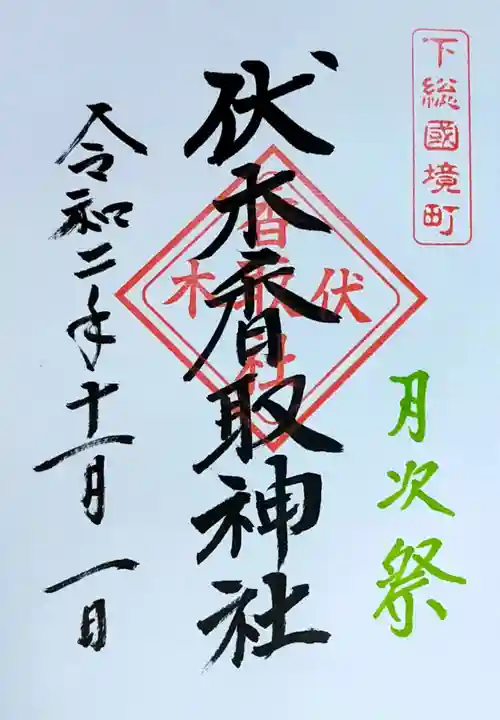 下総國境町
月次祭
伏木香取神社
伏木
香取社
令和二年十一月一日